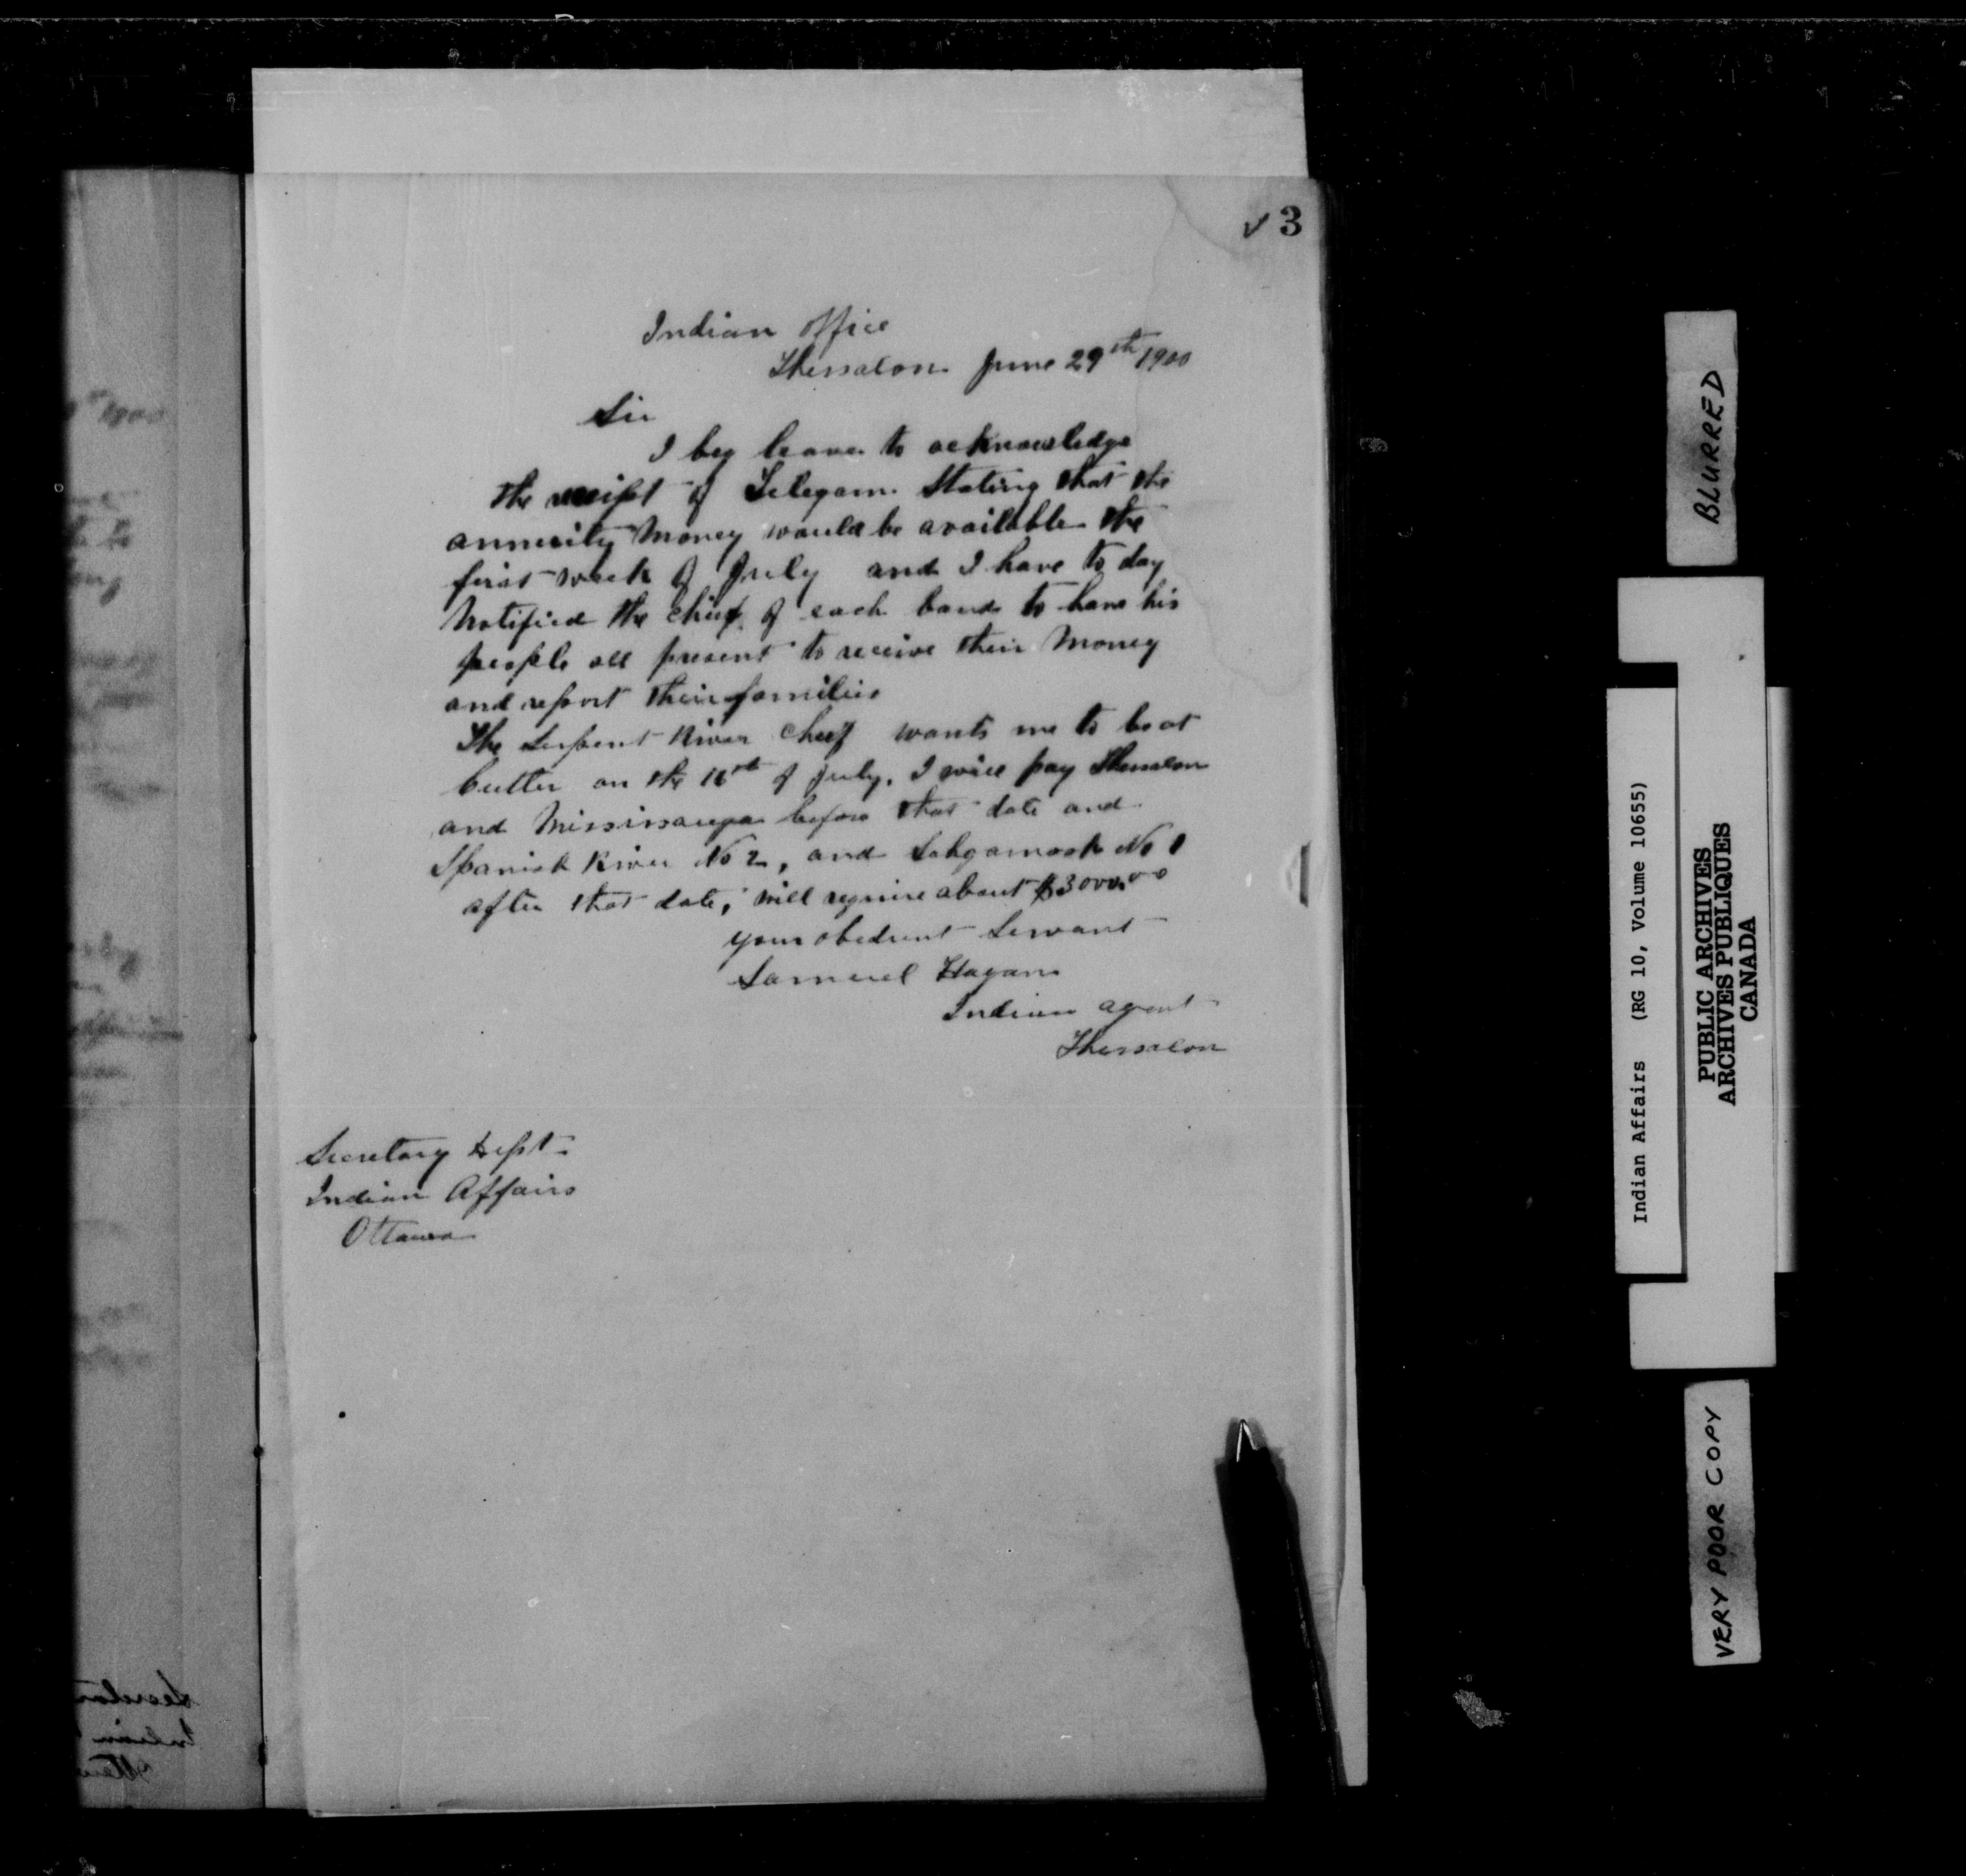 3
Indian office
Thessalon June 29th 1900
Sir
I beg leave to acknowledge
the receipt of Telegam Stating that the
annuity Money would be available the
first week of July and I have to day
Notified the chief of each band to have his
people all present to receive their Money
and report their families
The Serpent River Cheif wants me to be at
Cutler on the of July. I will pay Thessalon
and Mississauga before that date and
Spanish River No 2, and Sahgamook No 1
after that date, will require about $3000.00
your obedient Servant
Samuel Hagan
Indian agent
Thessalon
Secretary Dept
Indian Affairs
Ottawa
BLURRED
Indian Affairs (RG 10, Volume 10655)
PUBLIC ARCHIVES
ARCHIVES PUBLIQUES
CANADA
VERY POOR COPY